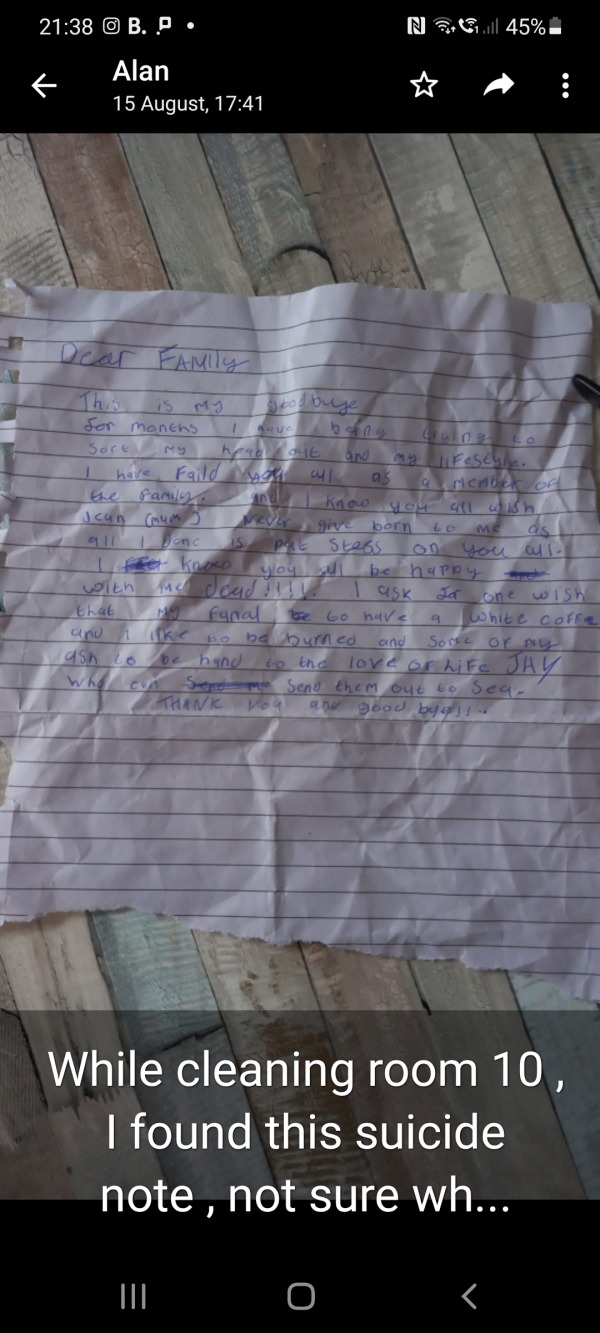 21:38 B. 45%
Alan
15 August, 17:41
Dear FAMILY
This is my goodbuye
for months I have being trying to
Sort my head out and my lifestyle.
I have Faild you all as a member of
the family. and I know you all wish
Jean (mum) Never give born to me as
all I done is put Stess on you all.
I know you all be happy
with me dead!!!!. I ask for one wish
that my funal to have a white coffe
and I like to be burned and some of my
ash to be hand to the love of Life JAY
who can Send them out to Sea.
THANK you and good byess..
While cleaning room 10 ,
I found this suicide
note , not sure wh...